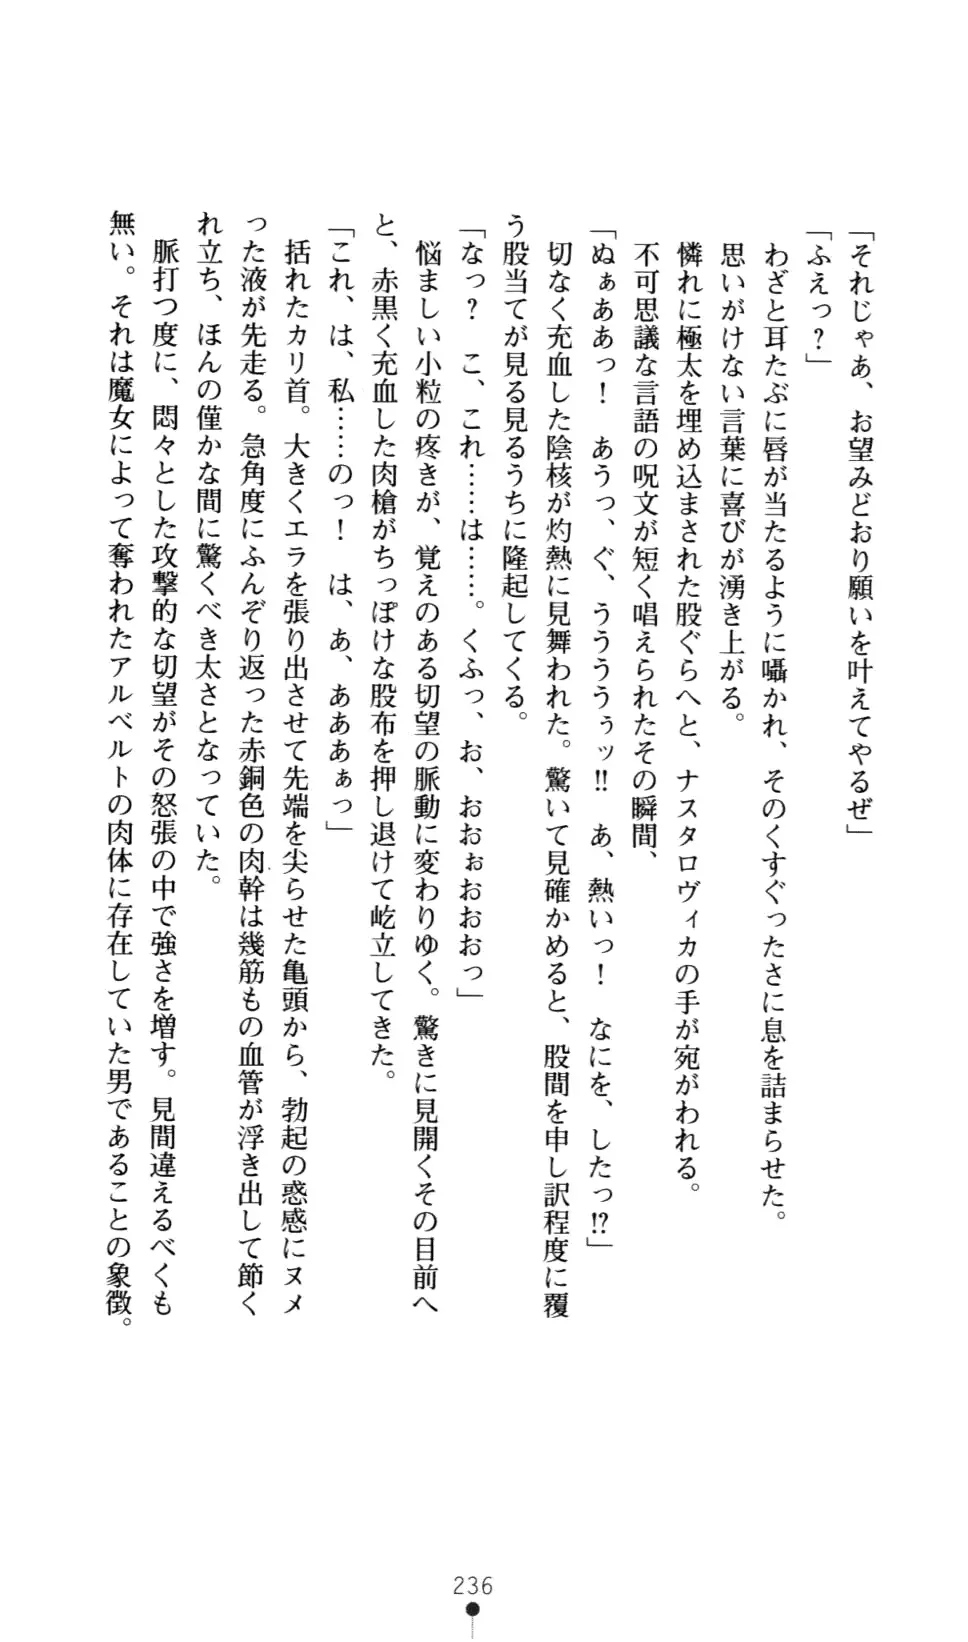 「それじゃあ、お望みどおり願いを叶えてやるぜ」
「ふえっ？」
わざと耳たぶに唇が当たるように囁かれ、そのくすぐったさに息を詰まらせた。
思いがけない言葉に喜びが湧き上がる。
憐れに極太を埋め込まされた股ぐらへと、ナスタロヴィカの手が宛がわれる。
不可思議な言語の呪文が短く唱えられたその瞬間、
「ぬぁああっ！　あうっ、ぐ、うううぅッ!!　あ、熱いっ！　なにを、したっ!?」
切なく充血した陰核が灼熱に見舞われた。驚いて見確かめると、股間を申し訳程度に覆
う股当てが見る見るうちに隆起してくる。
「なっ？　こ、これ……は……。くふっ、お、おおぉおおおっ」
悩ましい小粒の疼きが、覚えのある切望の脈動に変わりゆく。驚きに見開くその目前へ
と、赤黒く充血した肉槍がちっぽけな股布を押し退けて屹立してきた。
「これ、は、私……のっ！　は、あ、あああぁっ」
括れたカリ首。大きくエラを張り出させて先端を尖らせた亀頭から、勃起の惑感にヌメ
った液が先走る。急角度にふんぞり返った赤銅色の肉幹は幾筋もの血管が浮き出して節く
れ立ち、ほんの僅かな間に驚くべき太さとなっていた。
脈打つ度に、悶々とした攻撃的な切望がその怒張の中で強さを増す。見間違えるべくも
無い。それは魔女によって奪われたアルベルトの肉体に存在していた男であることの象徴。
236